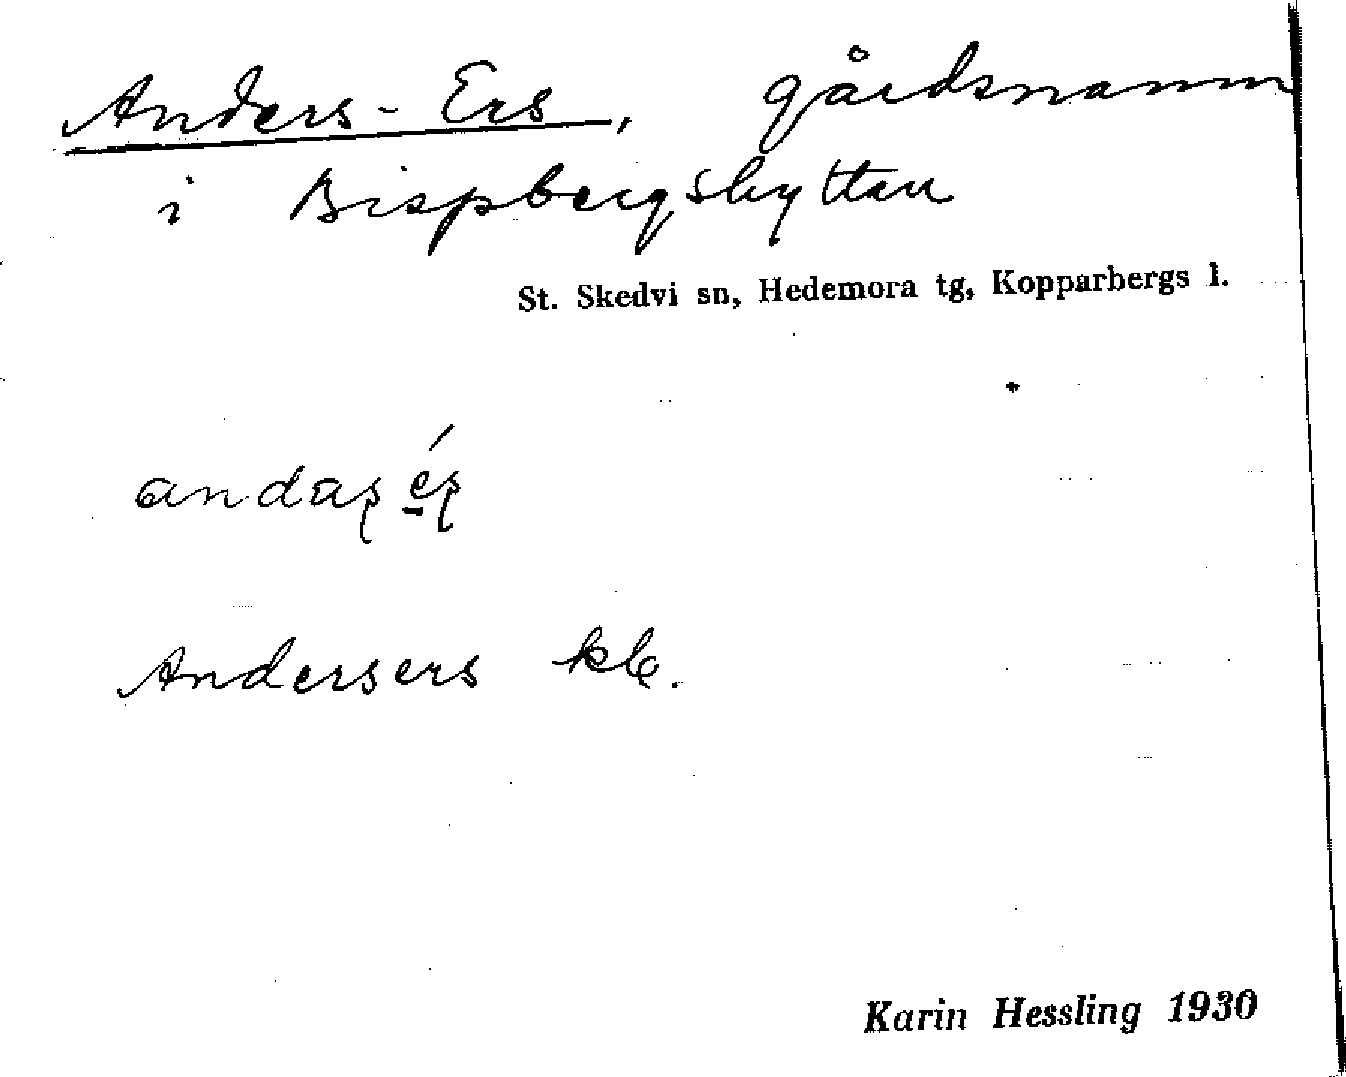 Anders-Ers, gårdsnamn
i Bispbergshyttan
St. Skedvi sn, Hedemora tg, Kopparbergs l.
andaʂ éʂ
Andersers
Karin Hessling 1930